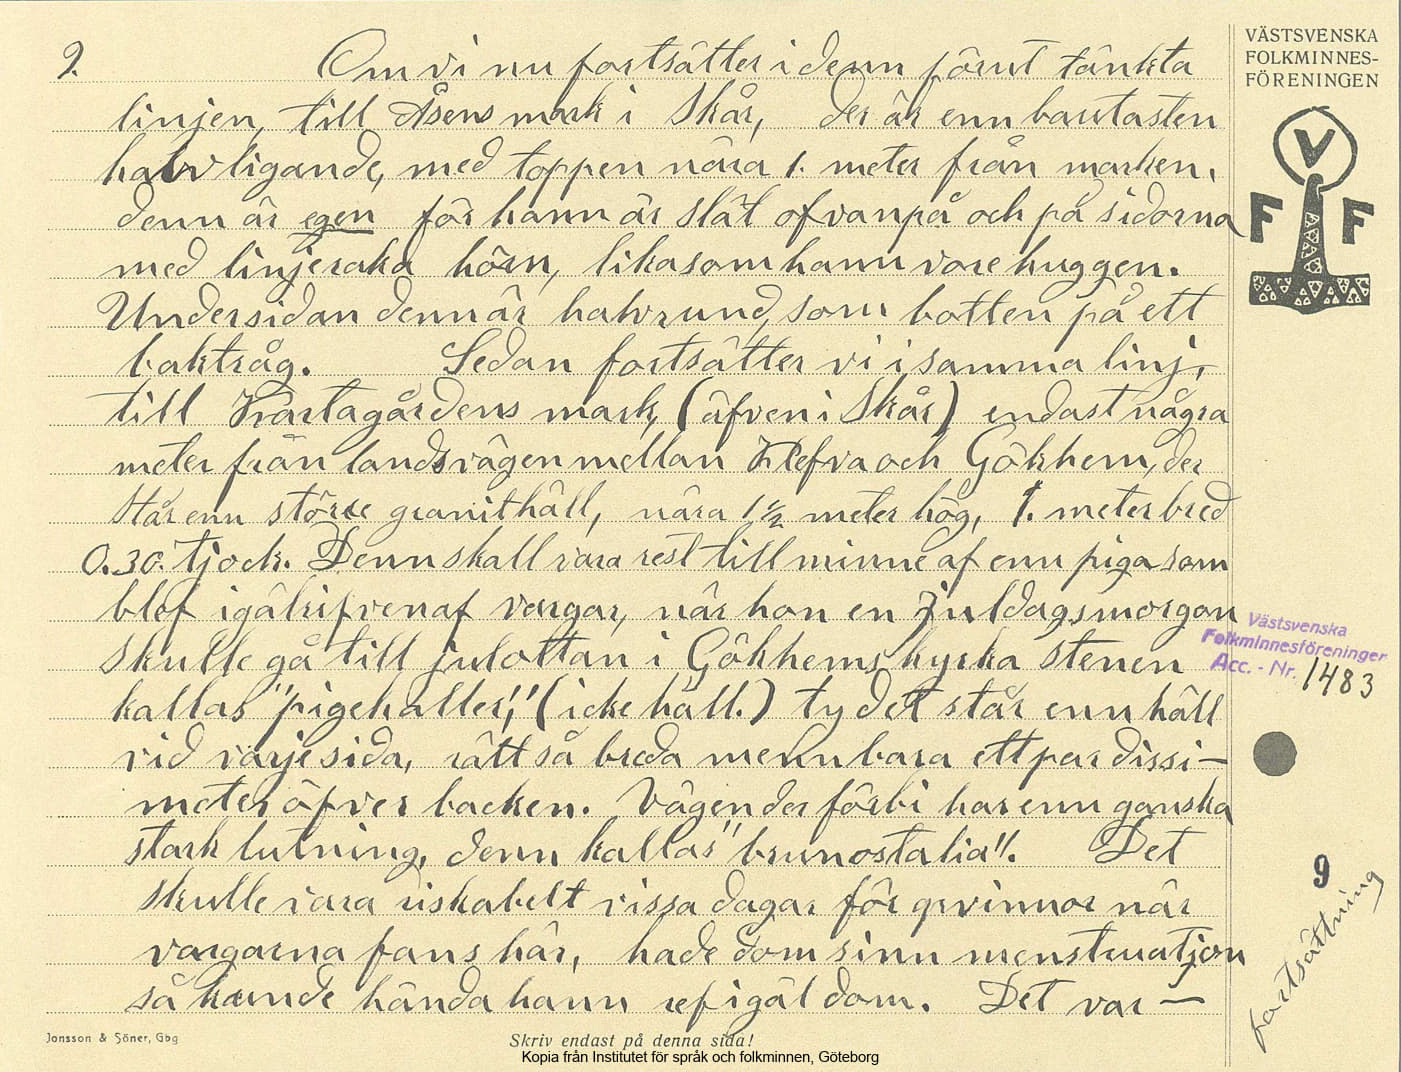 VÄSTSVENSKA
FOLKMINNES-
FÖRENINGEN
V
F F
9.
Om vi nu fortsätter i denn förut tänkta
linjen, till Åsens mark i Skår, der är enn bautasten
halvligande, med toppen nära 1. meter från marken,
denn är egen för hann är slät ofvanpå och på sidorna
med linjeraka hörn, likasom hann vore huggen.
Undersidan denn är halvrund, som botten på ett
baktråg. Sedan fortsätter vi i samma linj,
till Kårtagårdens mark, (äfven i Skår) endast några
meter från landsvägen mellan Klefva och Gökhem, der
står enn större granithäll, nära 1 1/2 meter hög, 1. meter bred
0.30. tjock. Denn skall vara rest till minne af enn piga som
blef igälrifven af vargar, när hon en juldagsmorgon
skulle gå till julottan i Gökhems kyrka stenen
kallas "pigehaller", (icke häll.) ty det står enn häll
vid varje sida, rätt så breda menn bara ett par dissi-
meter öfver backen. Vägen der förbi har enn ganska
stark lutning, denn kallas "brunostalia". Det
skulle vara riskabelt vissa dagar för qvinnor när
vargarna fans här, hade dom sinn menstruatjon
så kunde hända hann ref igäl dom. Det var —
Västsvenska
Folkminnesföreningen
Acc. - Nr. 1483
9
fortsättning
Jonsson & Söner, Gbg
Skriv endast på denna sida!
Kopia från Institutet för språk och folkminnen, Göteborg